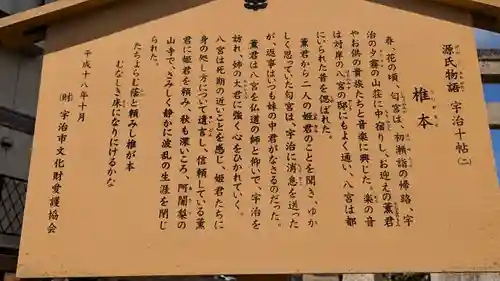 源氏物語 宇治十帖（二）
椎本
春、花の頃、匂宮は、初瀬詣の帰路、宇
治の夕霧の山荘に中宿りし、お迎えの薫君
やお供の貴族たちと音楽に興じた。楽の音
は対岸の八宮の邸にもよく通い、八宮は都
にいられた昔を偲ばれた。
薫君から二人の姫君のことを聞き、ゆか
しく思っていた匂宮は、宇治に消息を送った
が、返事はいつも妹の中君がなさるのだった。
薫君は八宮を仏道の師と仰いで、宇治を
訪れ、姉の大君に強く心をひかれていく。
八宮は死期の近いことを感じ、姫君たちに
身の処し方について遺言し、信頼している薫
君に姫君を頼み、秋も深いころ、阿闍梨の
山寺で、さみしく静かに波乱の生涯を閉じ
られた。
たちよらむ蔭と頼みし椎が本
むなしき床になりにけるかな
平成十八年十月
（財）宇治市文化財愛護協会